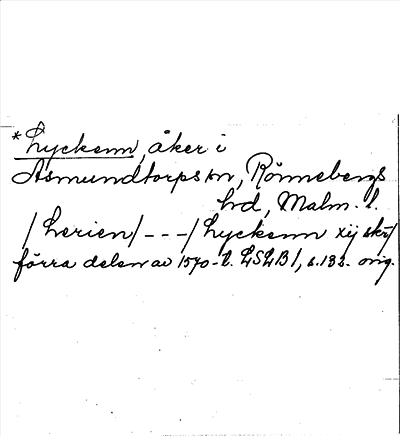 *Lyckenn, åker i
Asmundtorps sn, Rönnebergs
hd, Malm. l.
/Lerien/ - - -/ Lyckenn xij skr/
förra delen av 1570-t. LSLB 1, s. 132. orig.